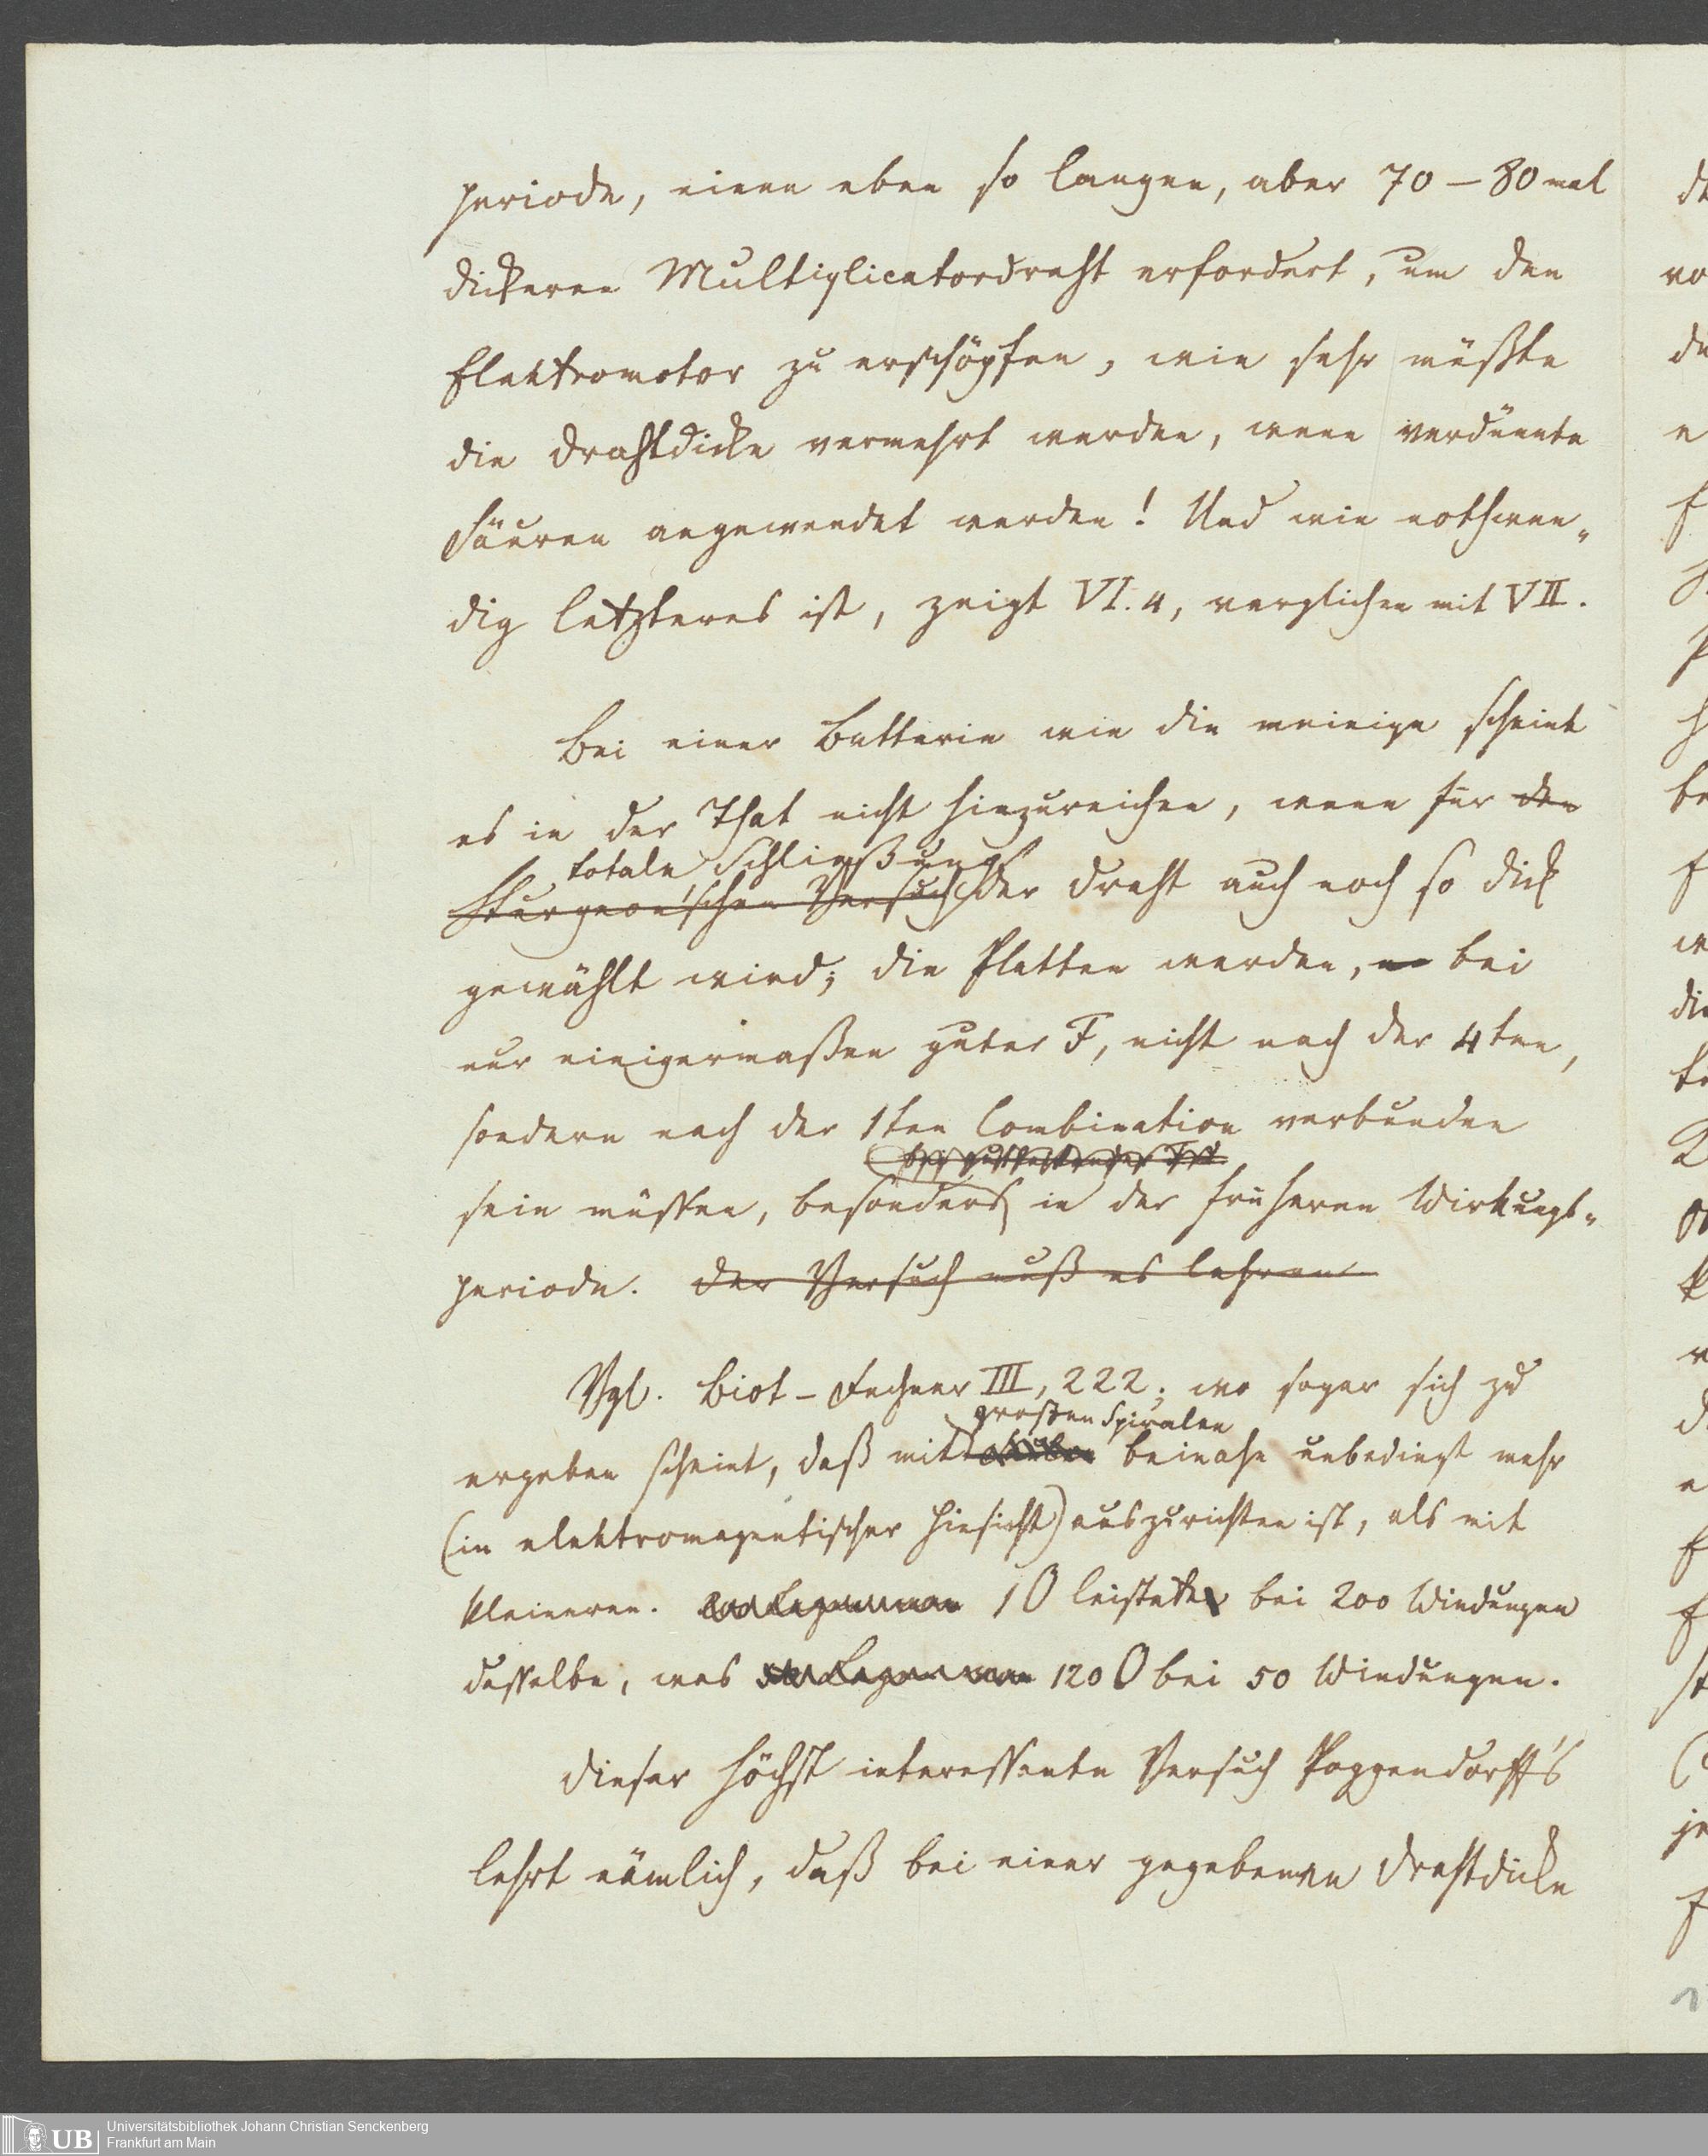 periode, einen eben so langen, aber 70 – 80 mal
dickeren Multiplicatordraht erfordert, um den
Elektromotor zu erschöpfen, wie sehr müßte
die Drahtdicke vermehrt werden, wenn verdünnte
Säuren angewendet werden! Und wie nothwen„
dig letzteres ist, zeigt VI. 4, verglichen mit VII.
Bei einer Batterie wie die meinige scheint
es in der That nicht hinzureichen, wenn für den
totale Schließung
Sturgeon'schen Versuch der Draht auch noch so dick
gewählt wird; die Platten werden, bei
nur einigermaßen guter F, nicht nach der 4ten,
sondern nach der 1ten Combination verbunden
sein müssen, besonders in der früheren Wirkungs„
periode. Der Versuch muß es lehren
Vgl. Biot – Fechner III, 222; wo sogar sich zu
großen Spiralen
ergeben scheint, daß mit beinahe unbedingt mehr
(in elektromagnetischer Hinsicht) auszurichten ist, als mit
kleineren. 1 O leistete bei 200 Windungen
dasselbe, was 120 O bei 50 Windungen.
Dieser höchst interessante Versuch Poggendorff's
lehrt nämlich, daß bei einer gegebenen Drahtdicke
Universitätsbibliothek Johann Christian Senckenberg
Frankfurt am Main
UB